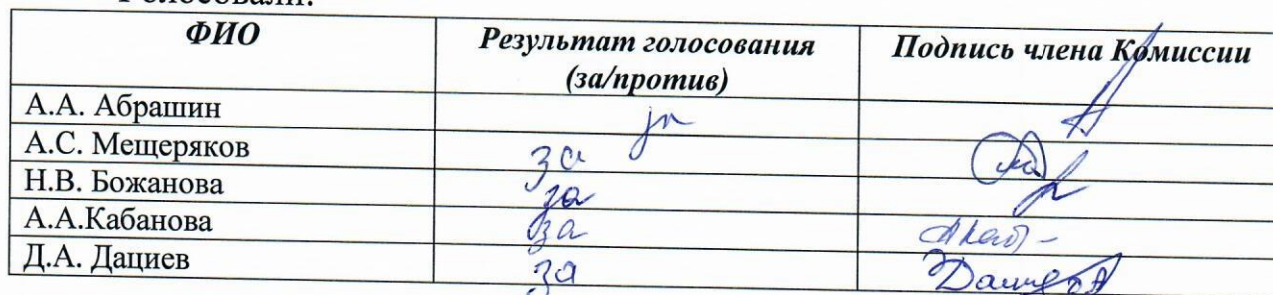 Голосовали:
ФИО Результат голосования (за/против) Подпись члена Комиссии
А.А. Абрашин за
А.С. Мещеряков за
Н.В. Божанова за
А.А.Кабанова за
Д.А. Дациев за